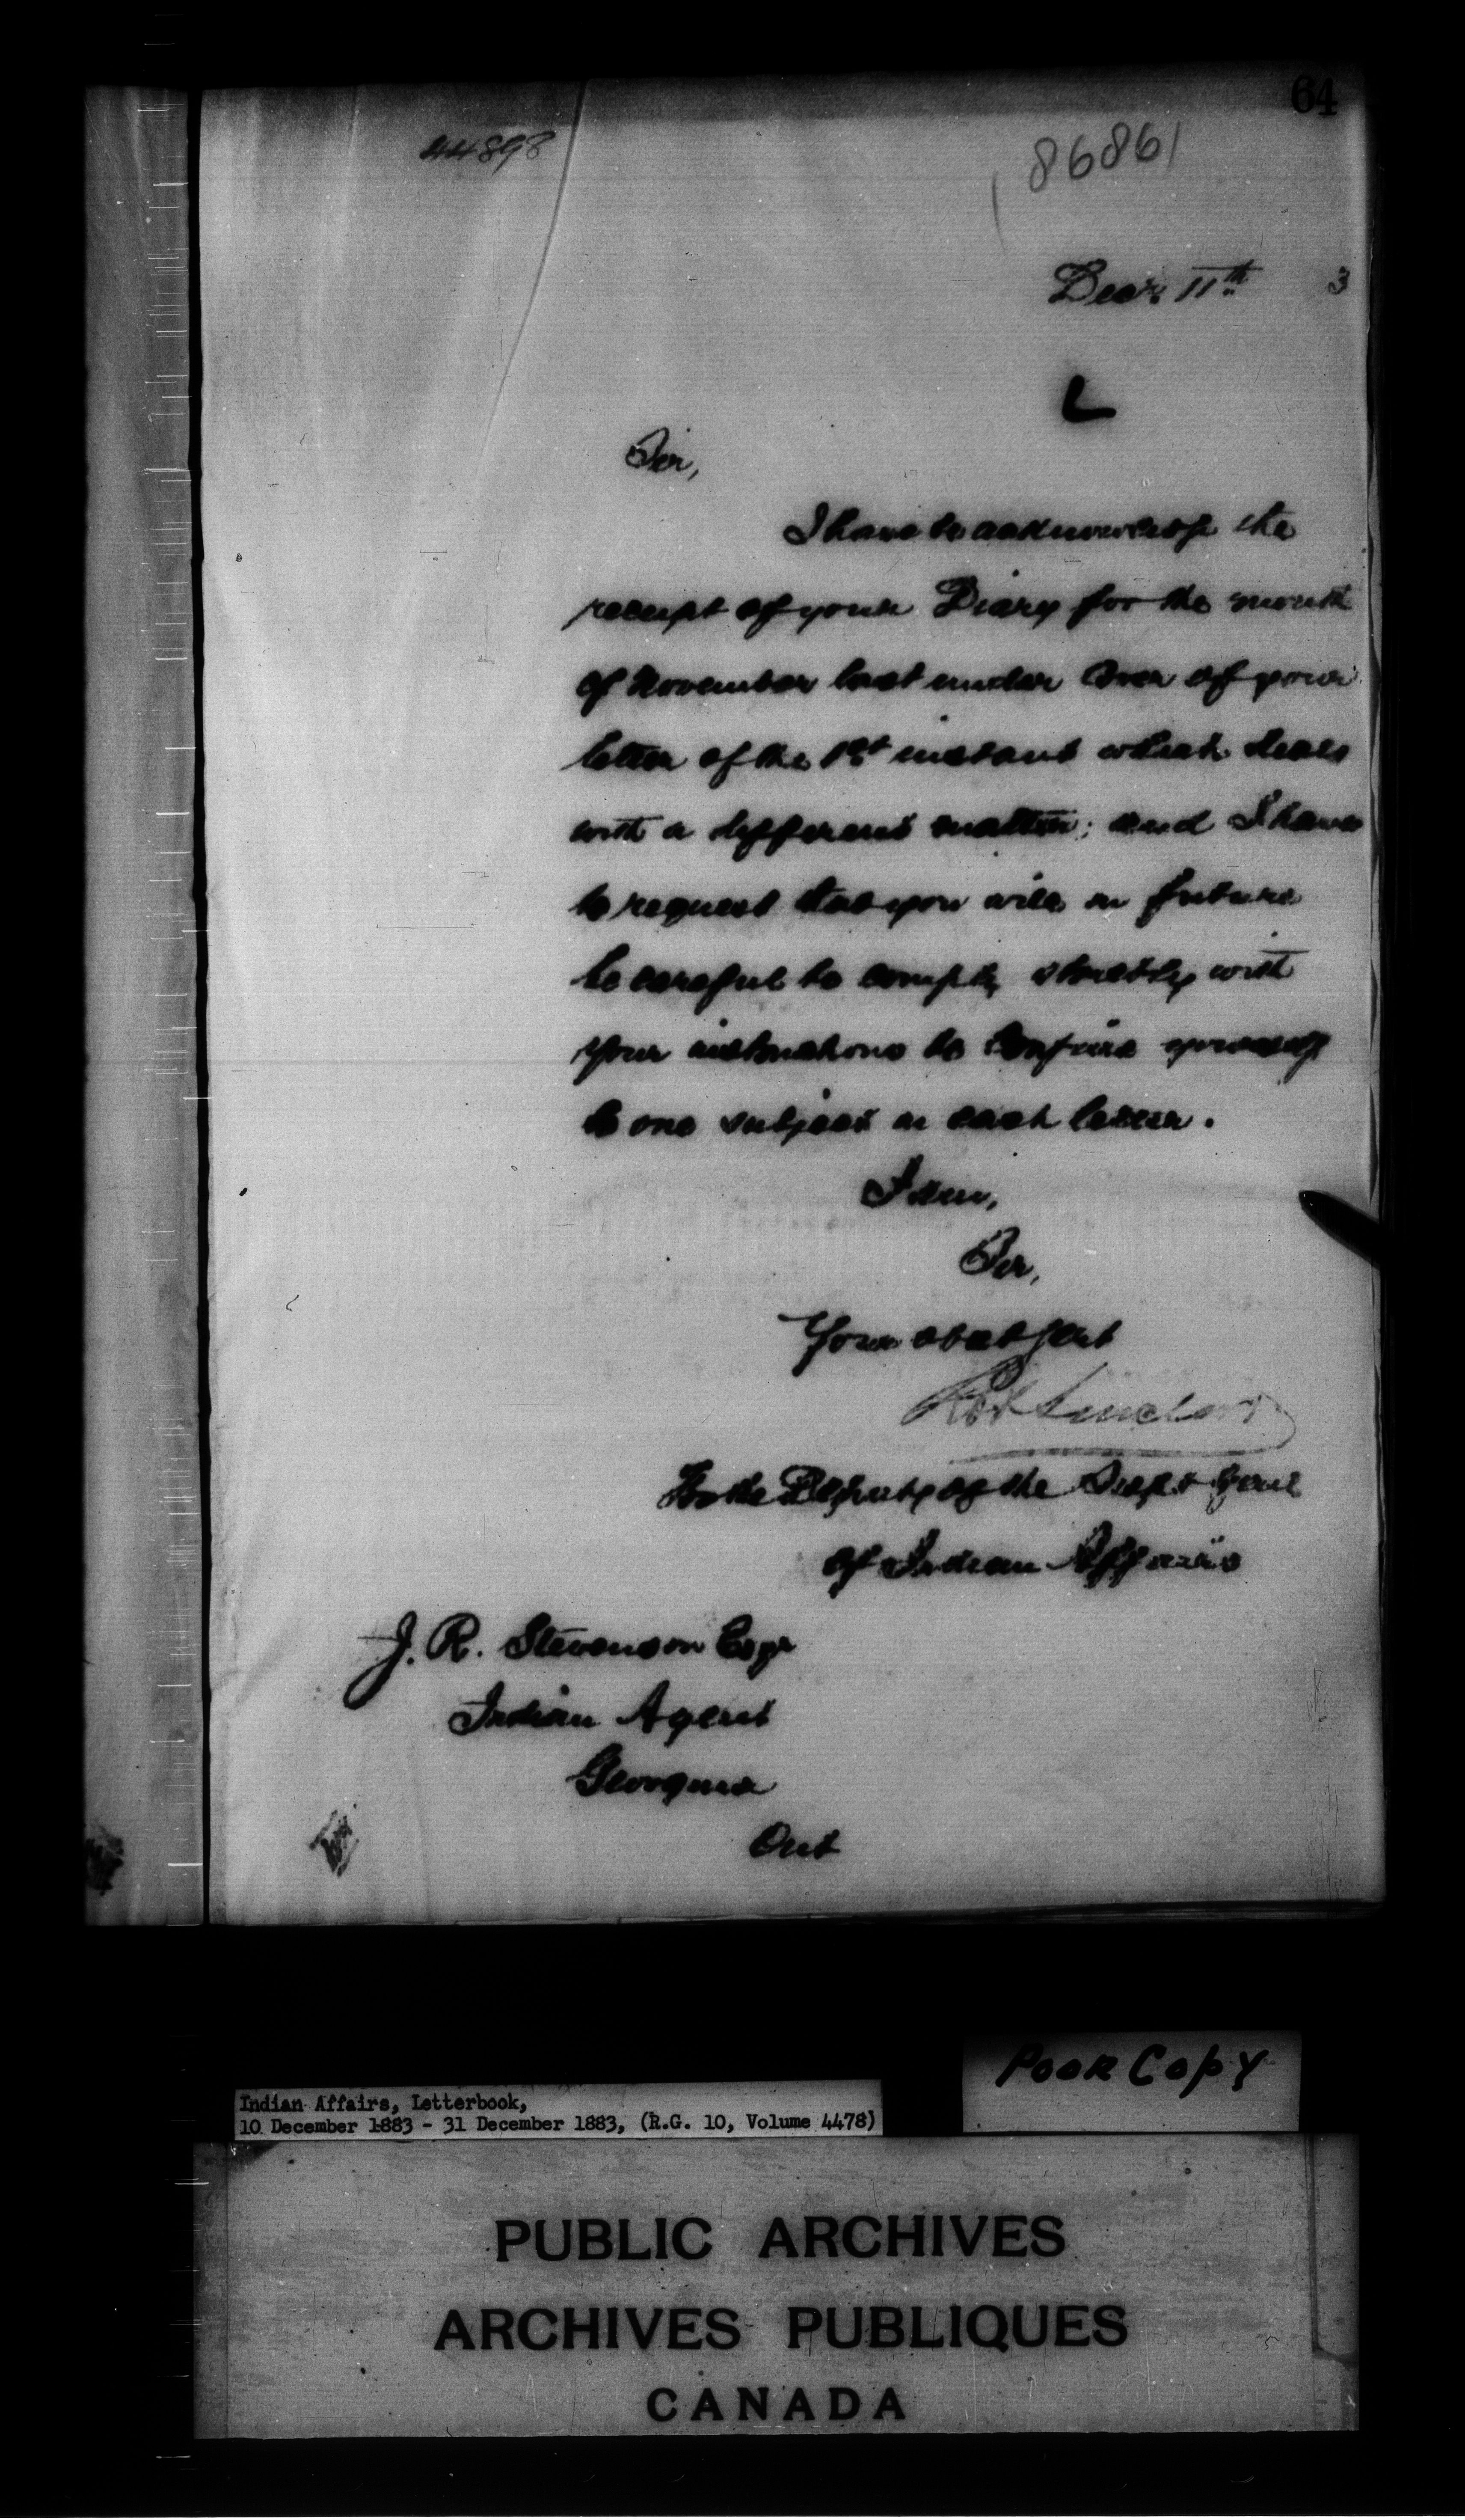 64
44898
86861
Decr 11th 3
L
Sir,
I have to acknowledge the
receipt of your Diary for the month
of November last under cover of your
letter of the 1st instant which deals
with a different matter; and I have
to request that you will in future
be careful to comply strictly with
your instructions to confine yourself
to one subject in each letter.
I am,
Sir,
Your obedt Servt
Robt Sinclair
For the Deputy of the Supt Genl
of Indian Affairs
J. R. Stevenson Esqr
Indian Agent
Georgina
Ont
Poor Copy
Indian Affairs, Letterbook,
10 December 1883 - 31 December 1883, (R.G. 10, Volume 4478)
PUBLIC ARCHIVES
ARCHIVES PUBLIQUES
CANADA